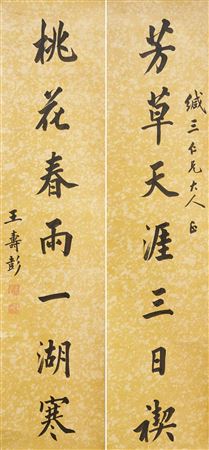 緘三仁兄大人正
芳草天涯三日禊
桃花春雨一湖寒
王壽彭